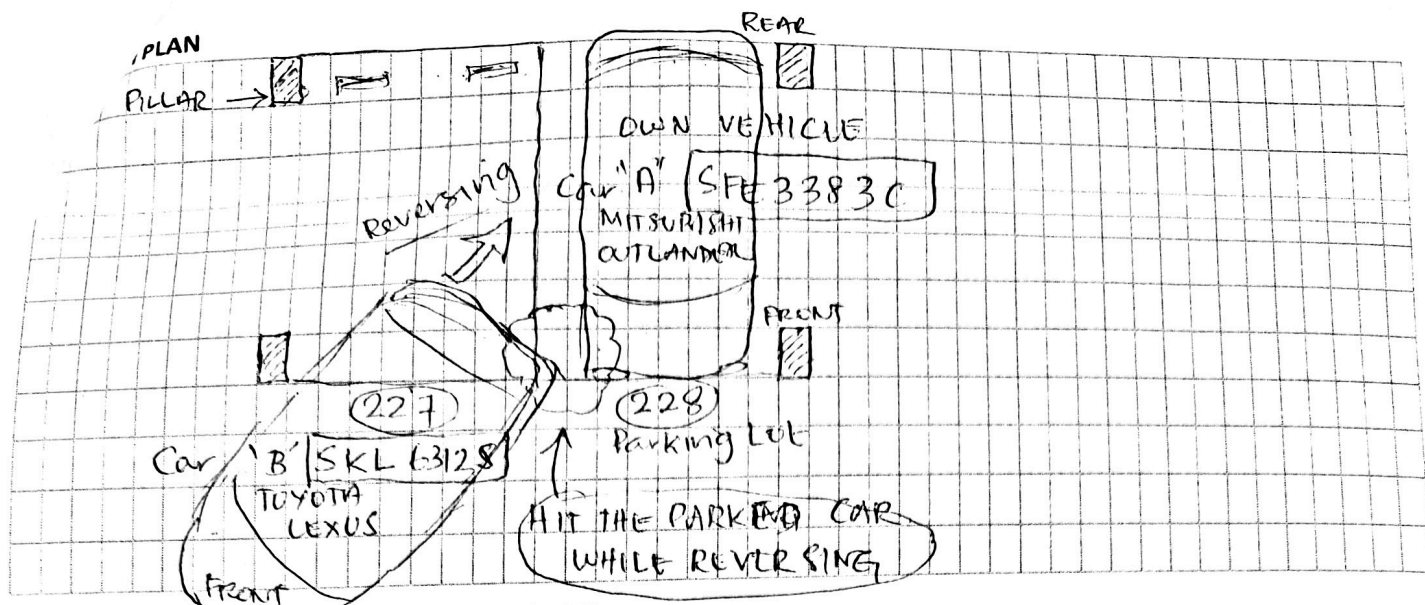 PLAN
REAR
PILLAR
OWN VEHICLE
Reversing
Car "A" SFE 3383C
MITSUBISHI
OUTLANDER
FRONT
227
228
Parking Lot
Car 'B' SKL 6312S
TOYOTA
LEXUS
HIT THE PARKED CAR
WHILE REVERSING
FRONT